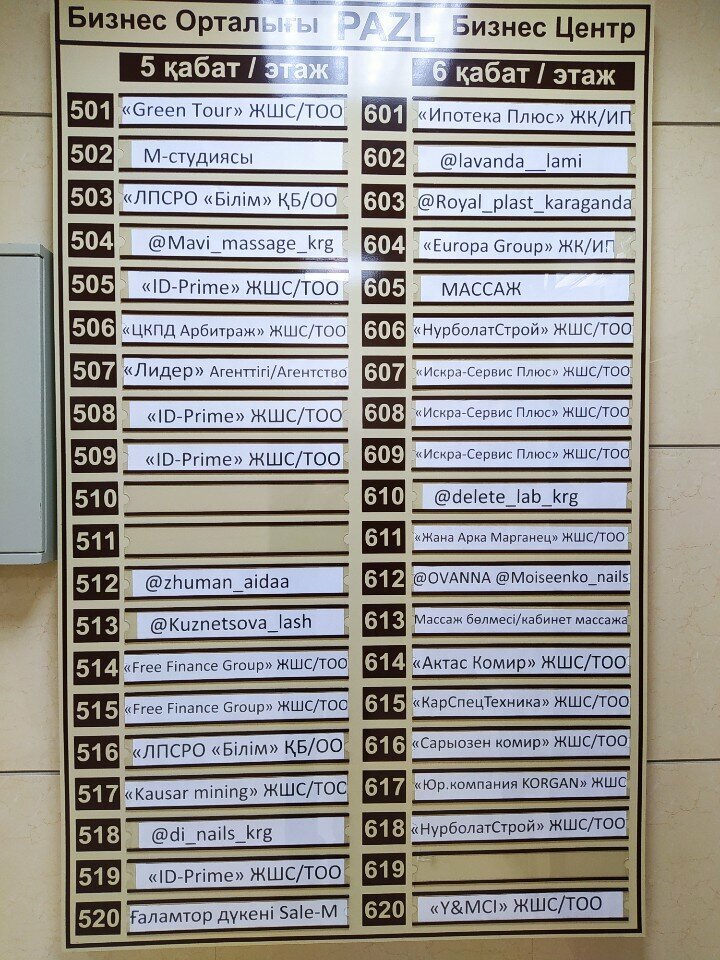 Бизнес Орталығы PAZL Бизнес Центр
5 қабат / этаж
501 «Green Tour» ЖШС/ТОО
502 М-студиясы
503 «ЛПСРО «Білім» ҚБ/ОО
504 @Mavi_massage_krg
505 «ID-Prime» ЖШС/ТОО
506 «ЦКПД Арбитраж» ЖШС/ТОО
507 «Лидер» Агенттігі/Агентство
508 «ID-Prime» ЖШС/ТОО
509 «ID-Prime» ЖШС/ТОО
510
511
512 @zhuman_aidaa
513 @Kuznetsova_lash
514 «Free Finance Group» ЖШС/ТОО
515 «Free Finance Group» ЖШС/ТОО
516 «ЛПСРО «Білім» ҚБ/ОО
517 «Kausar mining» ЖШС/ТОО
518 @di_nails_krg
519 «ID-Prime» ЖШС/ТОО
520 Ғаламтор дүкені Sale-M
6 қабат / этаж
601 «Ипотека Плюс» ЖК/ИП
602 @lavanda__lami
603 @Royal_plast_karaganda
604 «Europa Group» ЖК/ИП
605 МАССАЖ
606 «НурболатСтрой» ЖШС/ТОО
607 «Искра-Сервис Плюс» ЖШС/ТОО
608 «Искра-Сервис Плюс» ЖШС/ТОО
609 «Искра-Сервис Плюс» ЖШС/ТОО
610 @delete_lab_krg
611 «Жана Арка Марганец» ЖШС/ТОО
612 @OVANNA @Moiseenko_nails
613 Массаж бөлмесі/кабинет массажа
614 «Актас Комир» ЖШС/ТОО
615 «КарСпецТехника» ЖШС/ТОО
616 «Сарыозен комир» ЖШС/ТОО
617 «Юр.компания KORGAN» ЖШС
618 «НурболатСтрой» ЖШС/ТОО
619
620 «Y&MCI» ЖШС/ТОО